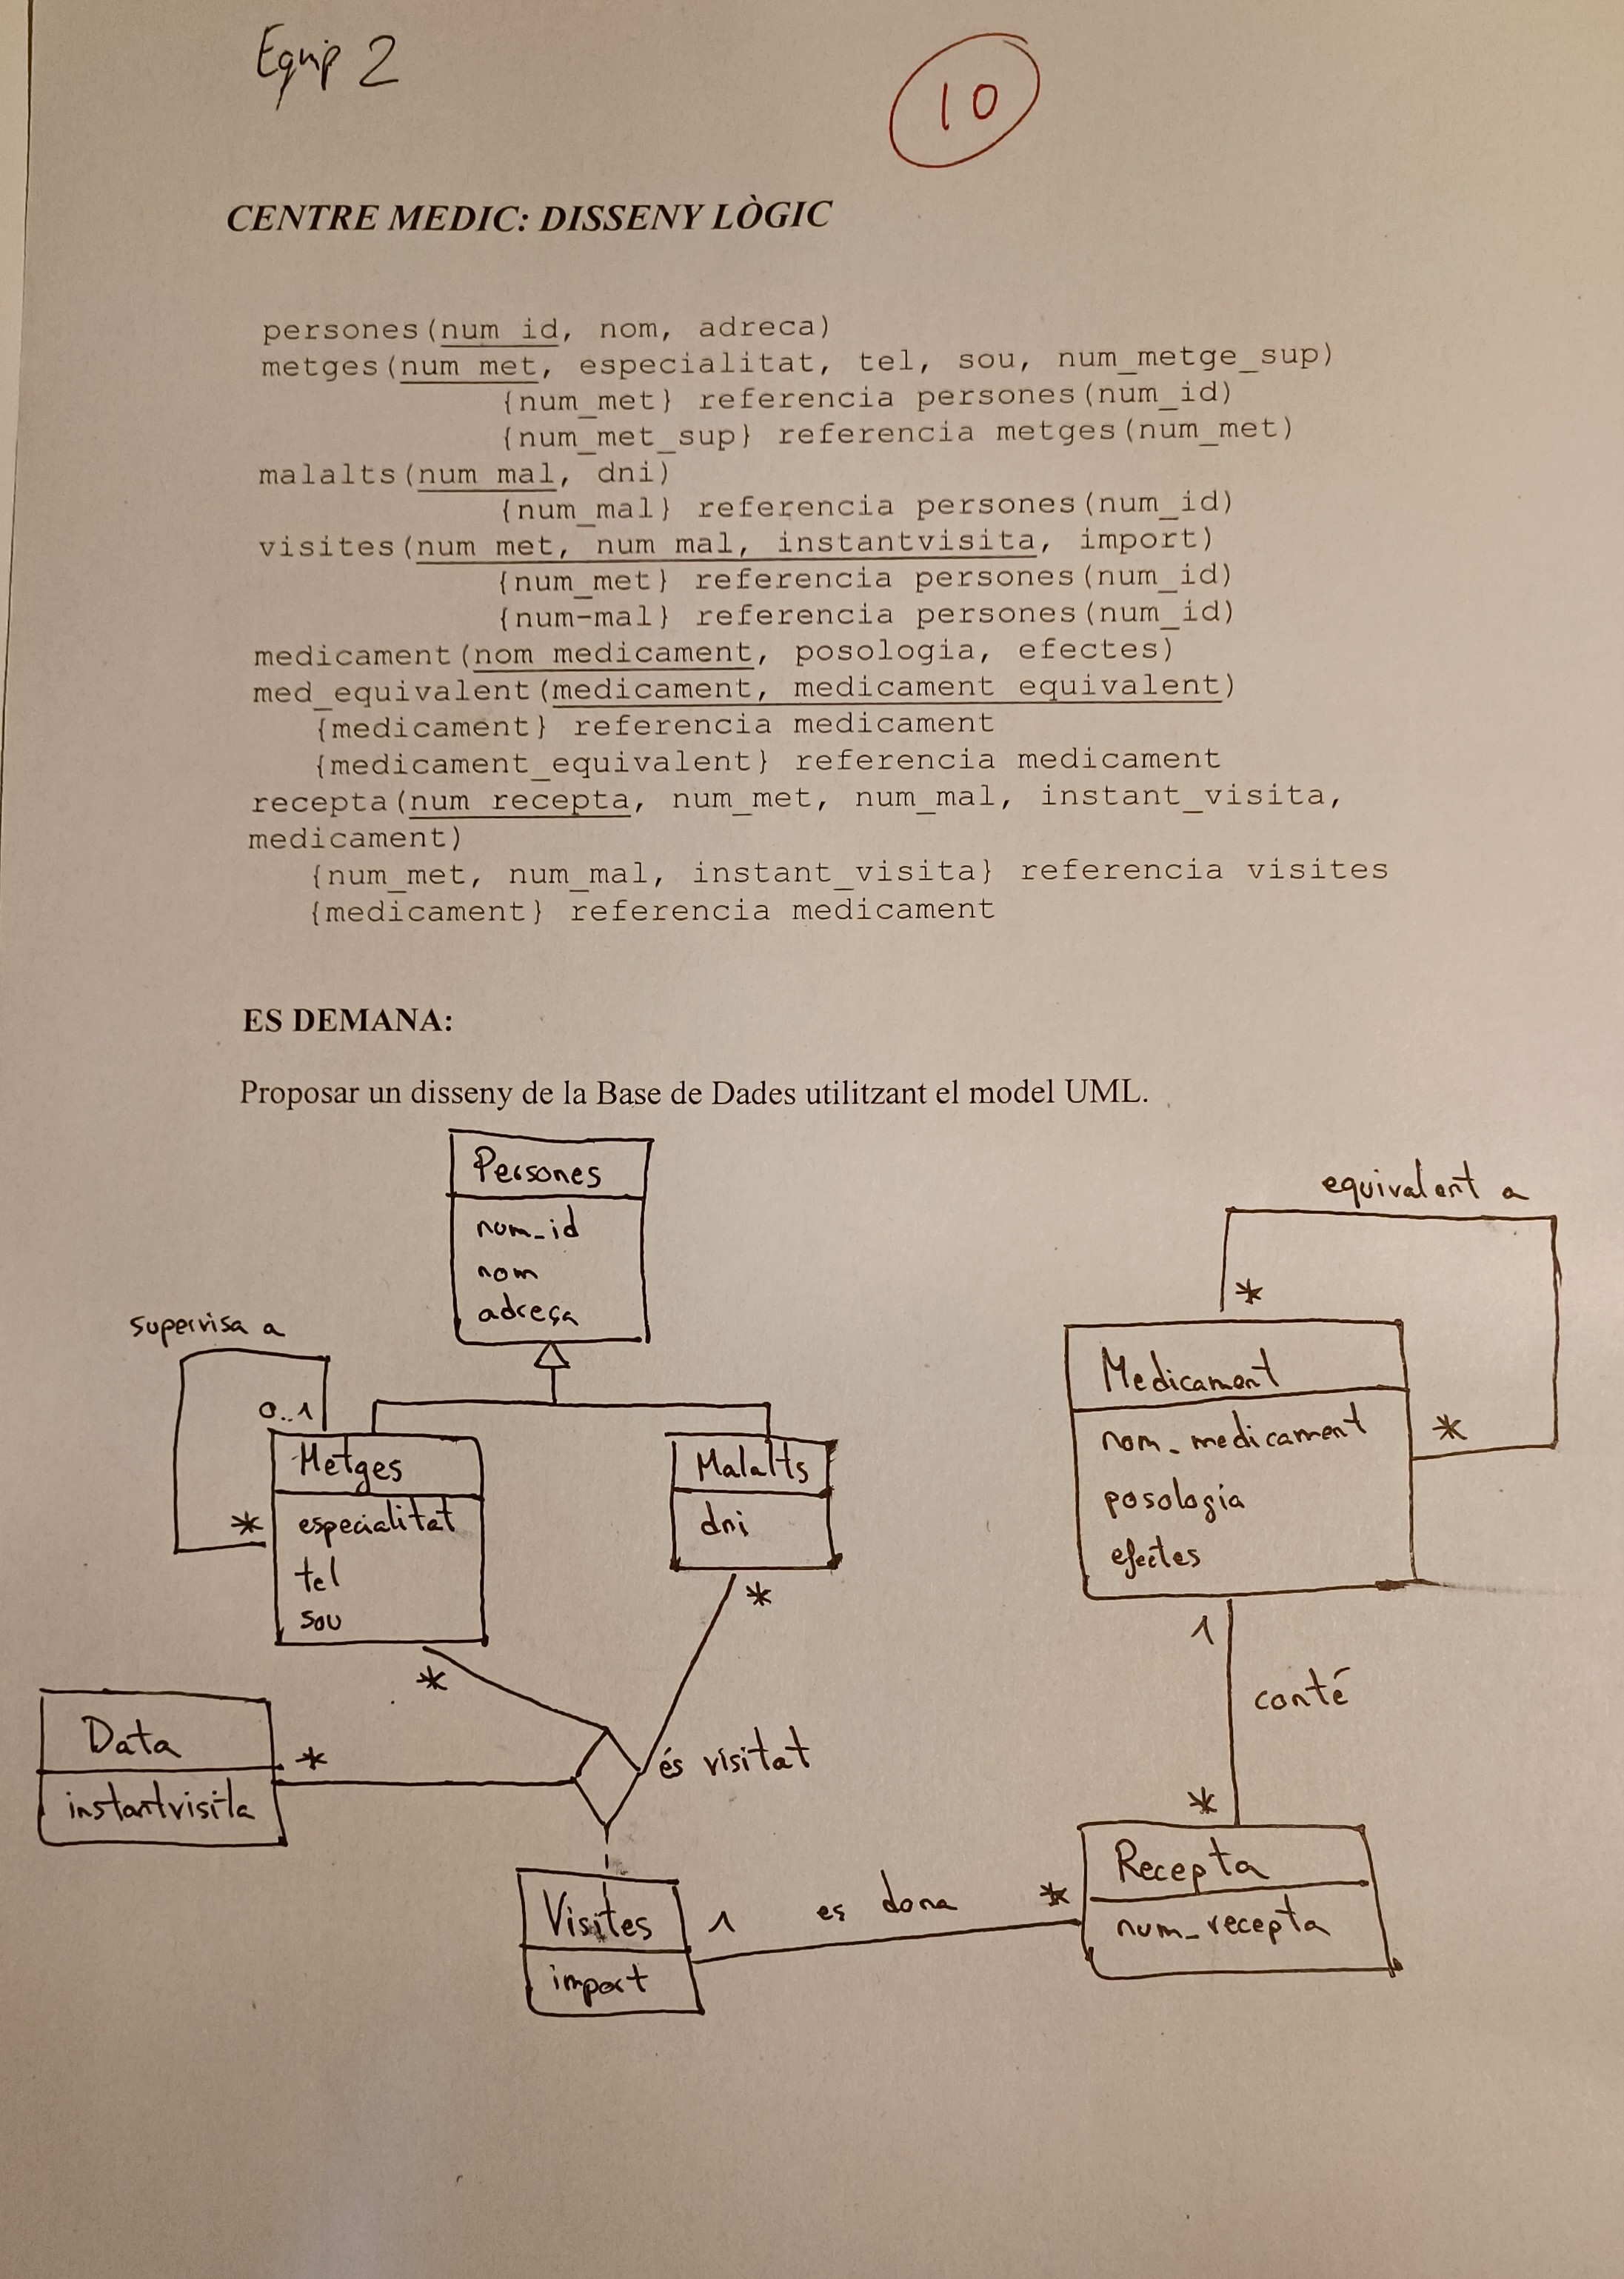 Equip 2
10
CENTRE MEDIC: DISSENY LÒGIC
persones(num_id, nom, adreca)
metges(num_met, especialitat, tel, sou, num_metge_sup)
{num_met} referencia persones(num_id)
{num_met_sup} referencia metges(num_met)
malalts(num_mal, dni)
{num_mal} referencia persones(num_id)
visites(num_met, num_mal, instantvisita, import)
{num_met} referencia persones(num_id)
{num-mal} referencia persones(num_id)
medicament(nom_medicament, posologia, efectes)
med_equivalent(medicament, medicament_equivalent)
{medicament} referencia medicament
{medicament_equivalent} referencia medicament
recepta(num_recepta, num_met, num_mal, instant_visita,
medicament)
{num_met, num_mal, instant_visita} referencia visites
{medicament} referencia medicament
ES DEMANA:
Proposar un disseny de la Base de Dades utilitzant el model UML.
Persones
num_id
nom
adreça
supervisa a
0..1
*
Metges
especialitat
tel
sou
*
Malalts
dni
*
Data
instantvisita
*
és visitat
Visites
import
1
es dona
*
equivalent a
*
*
Medicament
nom_medicament
posologia
efectes
1
conté
*
Recepta
num_recepta